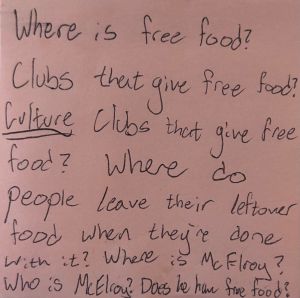 Where is free food?
Clubs that give free food?
Culture Clubs that give free
food? Where do
people leave their leftover
food when they're done
with it? Where is McElroy?
Who is McElroy? Does he have free food?